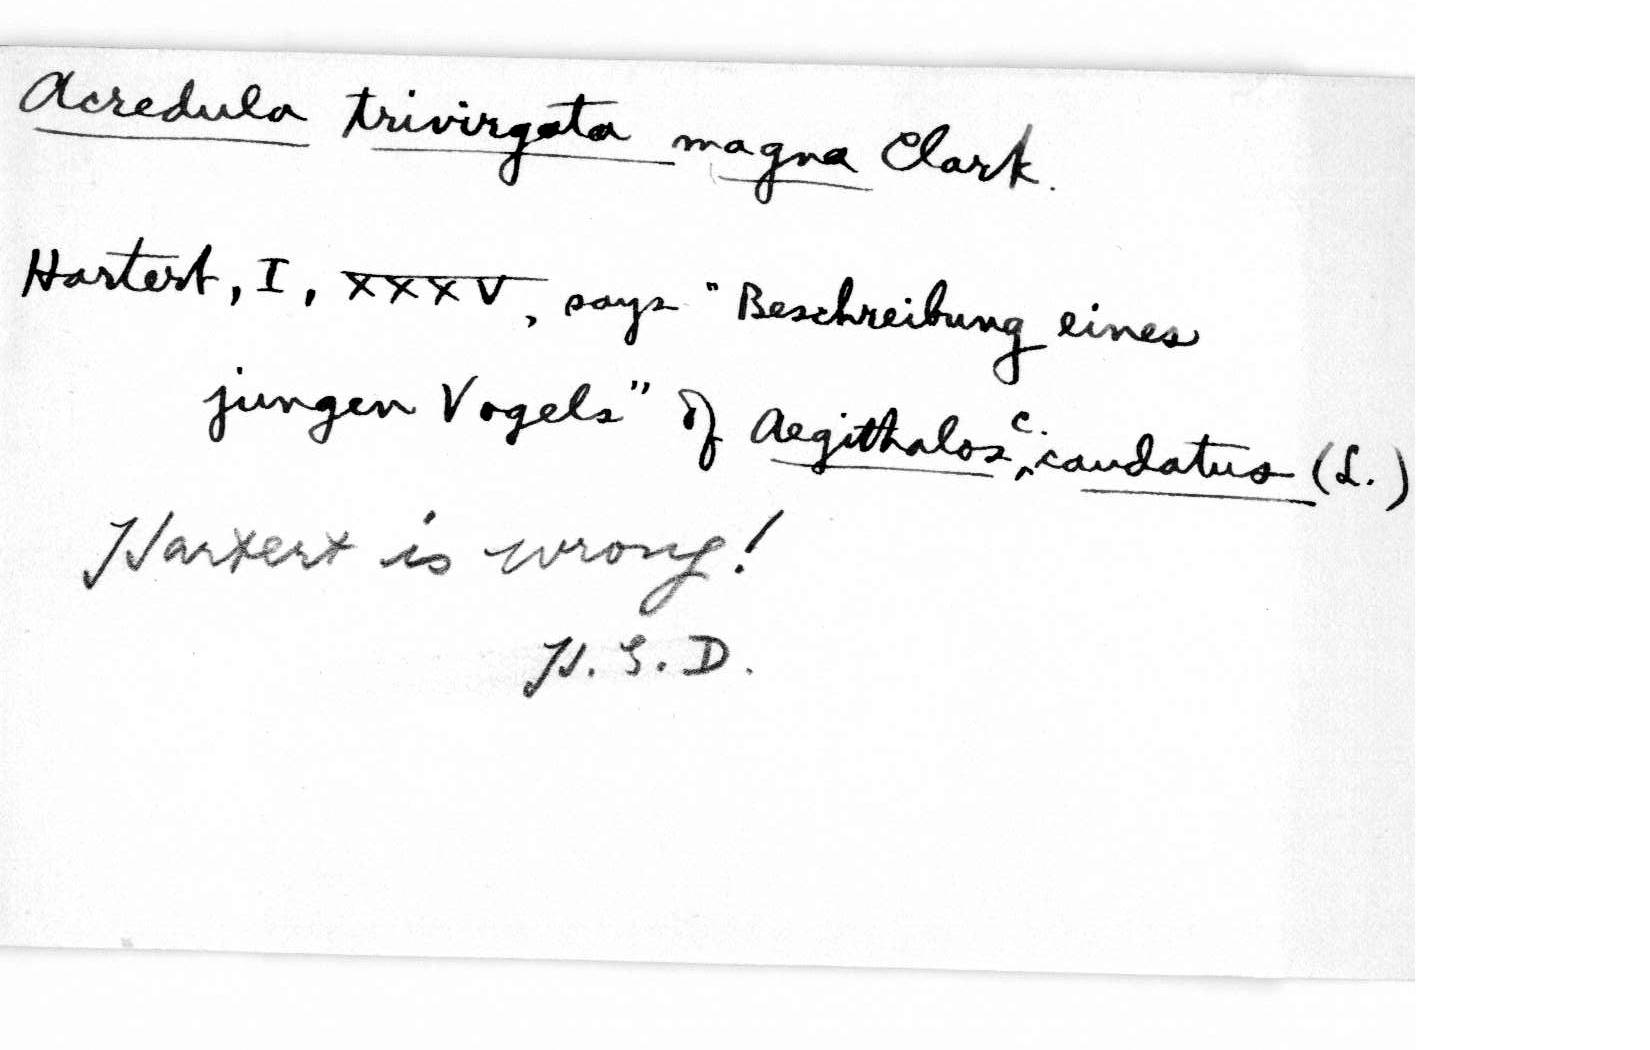 Acredula trivirgata magna Clark.
Hartert, I, XXXV, says "Beschreibung eines
jungen Vogels" of Aegithalos c. caudatus (L.)
Hartert is wrong!
H. G. D.